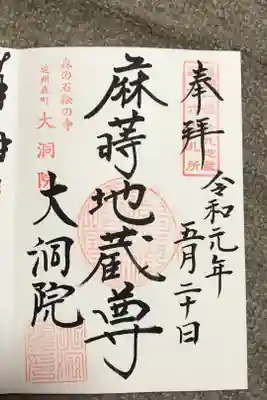 奉拝
令和元年
五月二十日
麻蒔地蔵尊
大洞院
森の石松の寺
遠州森町
大洞院